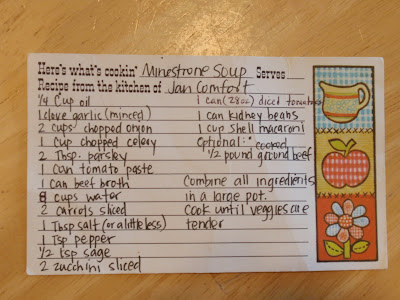 Here's what's cookin' Minestrone Soup Serves
Recipe from the kitchen of Jan Comfort
1/4 Cup oil
1 clove garlic (minced)
2 cups chopped onion
1 cup chopped celery
2 Tbsp. parsley
1 can tomato paste
1 can beef broth
8 cups water
2 carrots sliced
1 Tbsp salt (or a little less)
1 Tsp pepper
1/2 tsp sage
2 zucchini sliced
1 can (28oz) diced tomatoes
1 can kidney beans
1 cup shell macaroni
Optional: cooked
1/2 pound ground beef
Combine all ingredients
in a large pot.
Cook until veggies are
tender